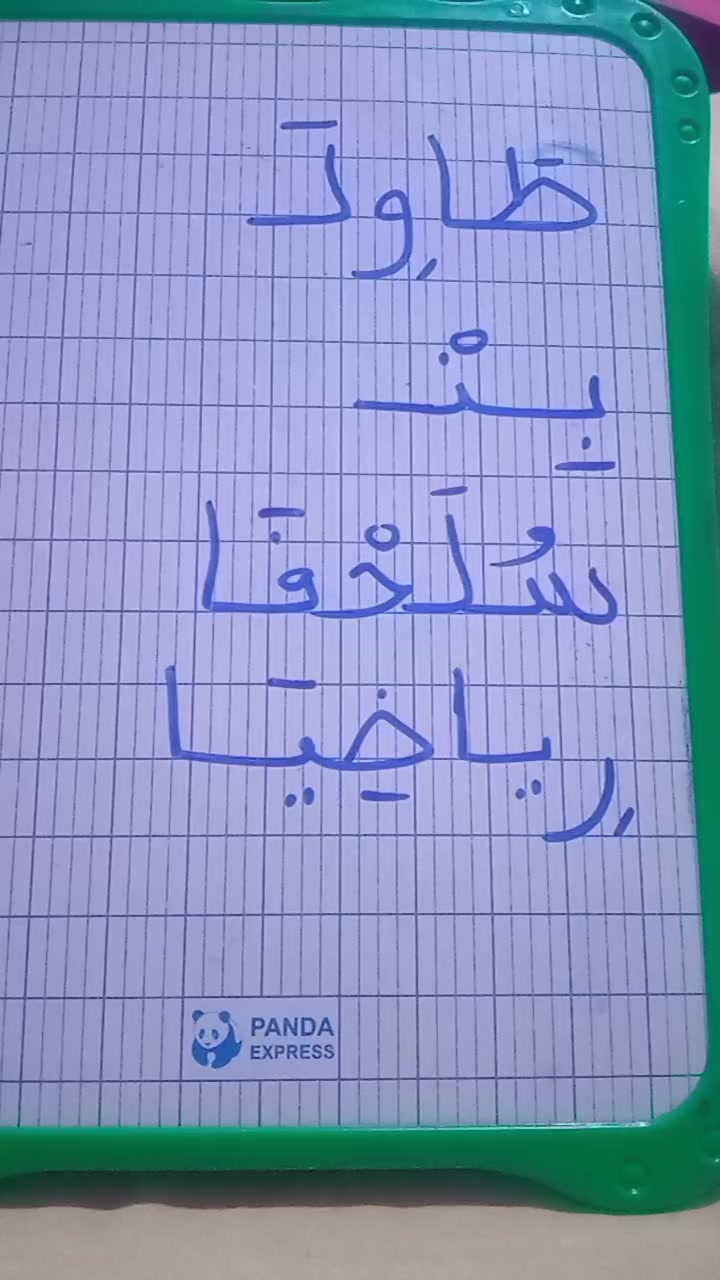 طَاوِلَـ
بِنْـ
سُلَحْفَا
رِيَاضِيَا
PANDA
EXPRESS